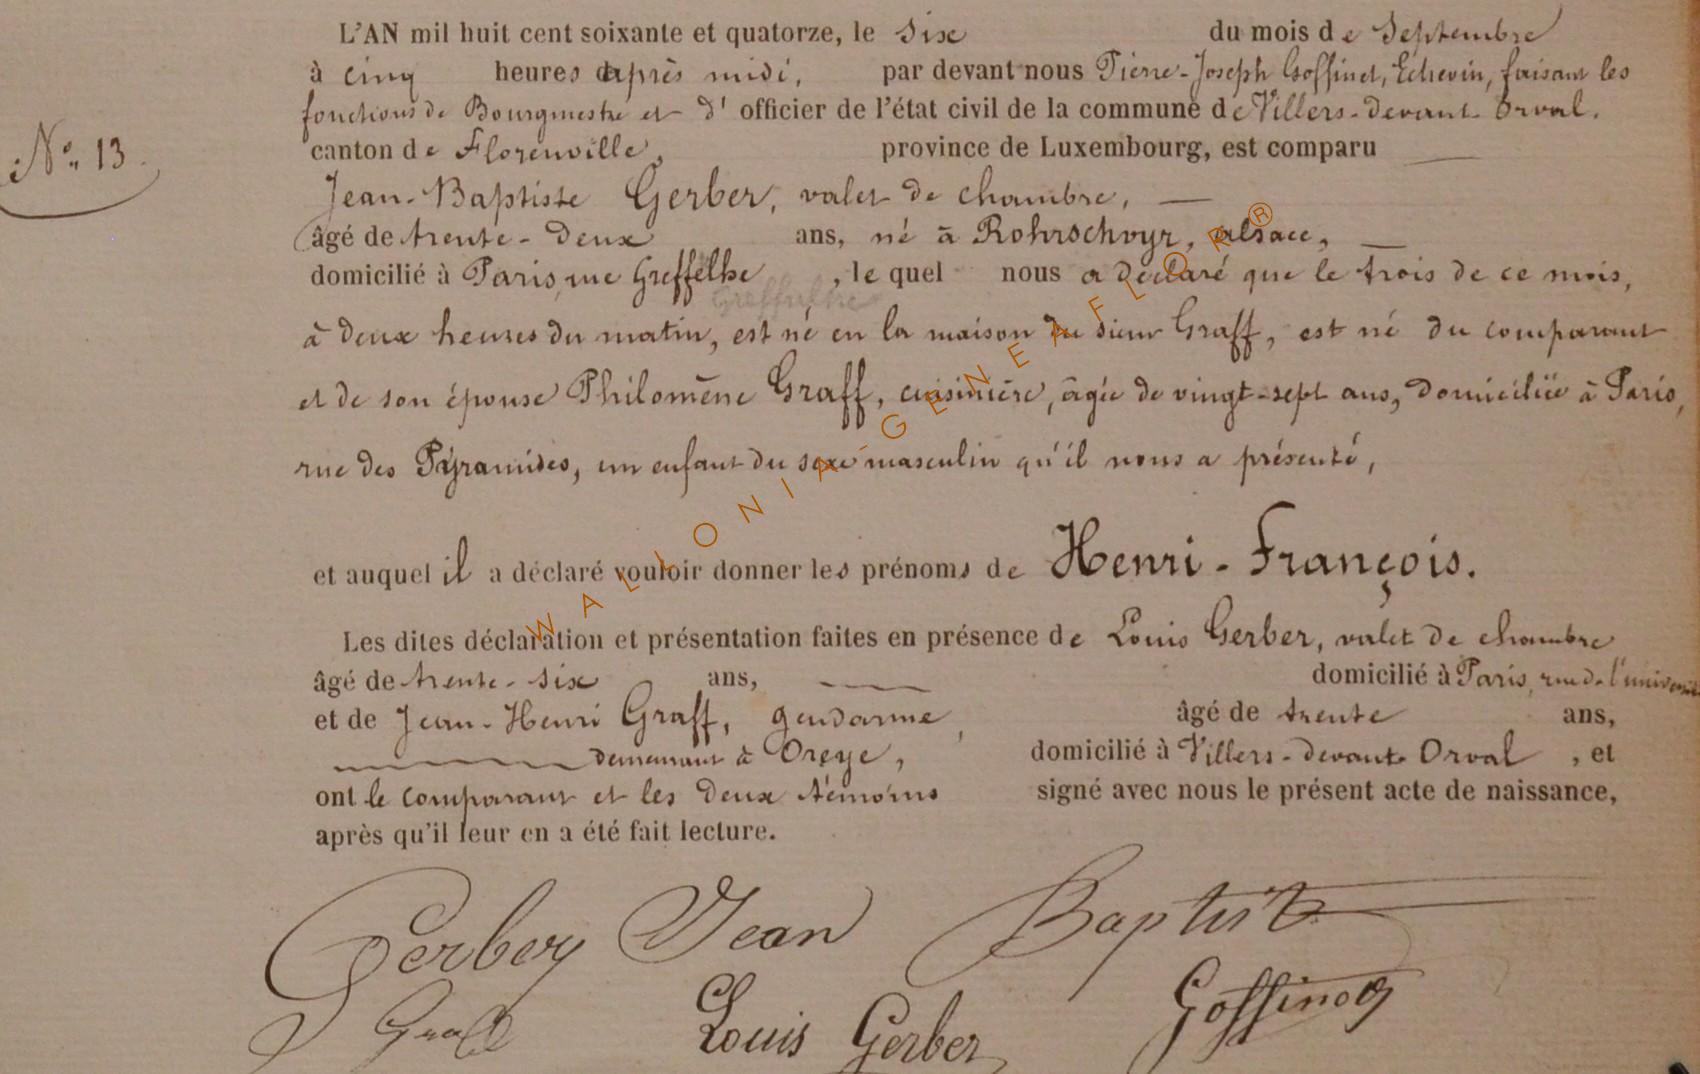 L'AN mil huit cent soixante et quatorze, le six du mois de Septembre
à cinq heures après midi, par devant nous Pierre-Joseph Goffinet, Echevin, faisant les
fonctions de Bourgmestre et d'officier de l'état civil de la commune de Villers-devant-Orval.
N° 13.
canton de Florenville, province de Luxembourg, est comparu
Jean-Baptiste Gerber, valet de chambre,
âgé de trente-deux ans, né à Rohrschwyr, alsace,
domicilié à Paris, rue Greffelhe, le quel nous a déclaré que le trois de ce mois,
Greffulhe
à deux heures du matin, est né en la maison du sieur Graff, est né du comparant
et de son épouse Philomène Graff, cuisinière, âgée de vingt-sept ans, domiciliée à Paris,
rue des Pyramides, un enfant du sexe masculin qu'il nous a présenté,
et auquel il a déclaré vouloir donner les prénoms de Henri-François.
Les dites déclaration et présentation faites en présence de Louis Gerber, valet de chambre
âgé de trente-six ans, domicilié à Paris, rue de l'université
et de Jean-Henri Graff, gendarme, âgé de trente ans,
demeurant à Oreye, domicilié à Villers-devant Orval, et
ont le comparant et les deux témoins signé avec nous le présent acte de naissance,
après qu'il leur en a été fait lecture.
Gerber Jean Baptist
Graff Louis Gerber Goffinet
WALLONIA-GENEAFLOR®